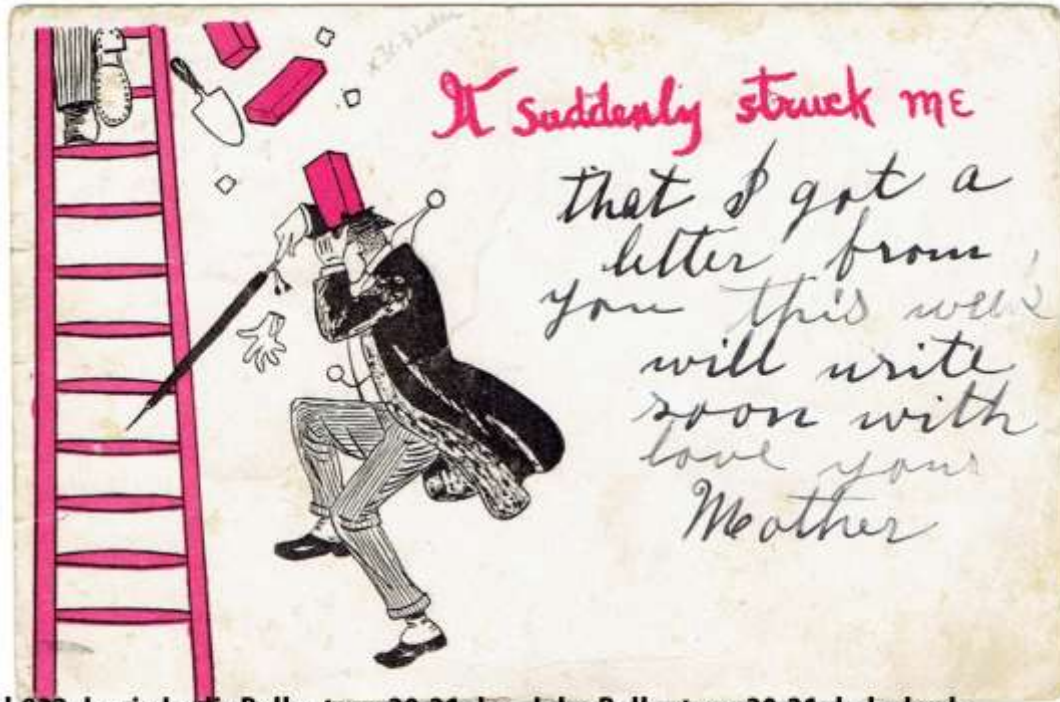 It suddenly struck me
that I got a
letter from
you this week
will write
soon with
love your
Mother